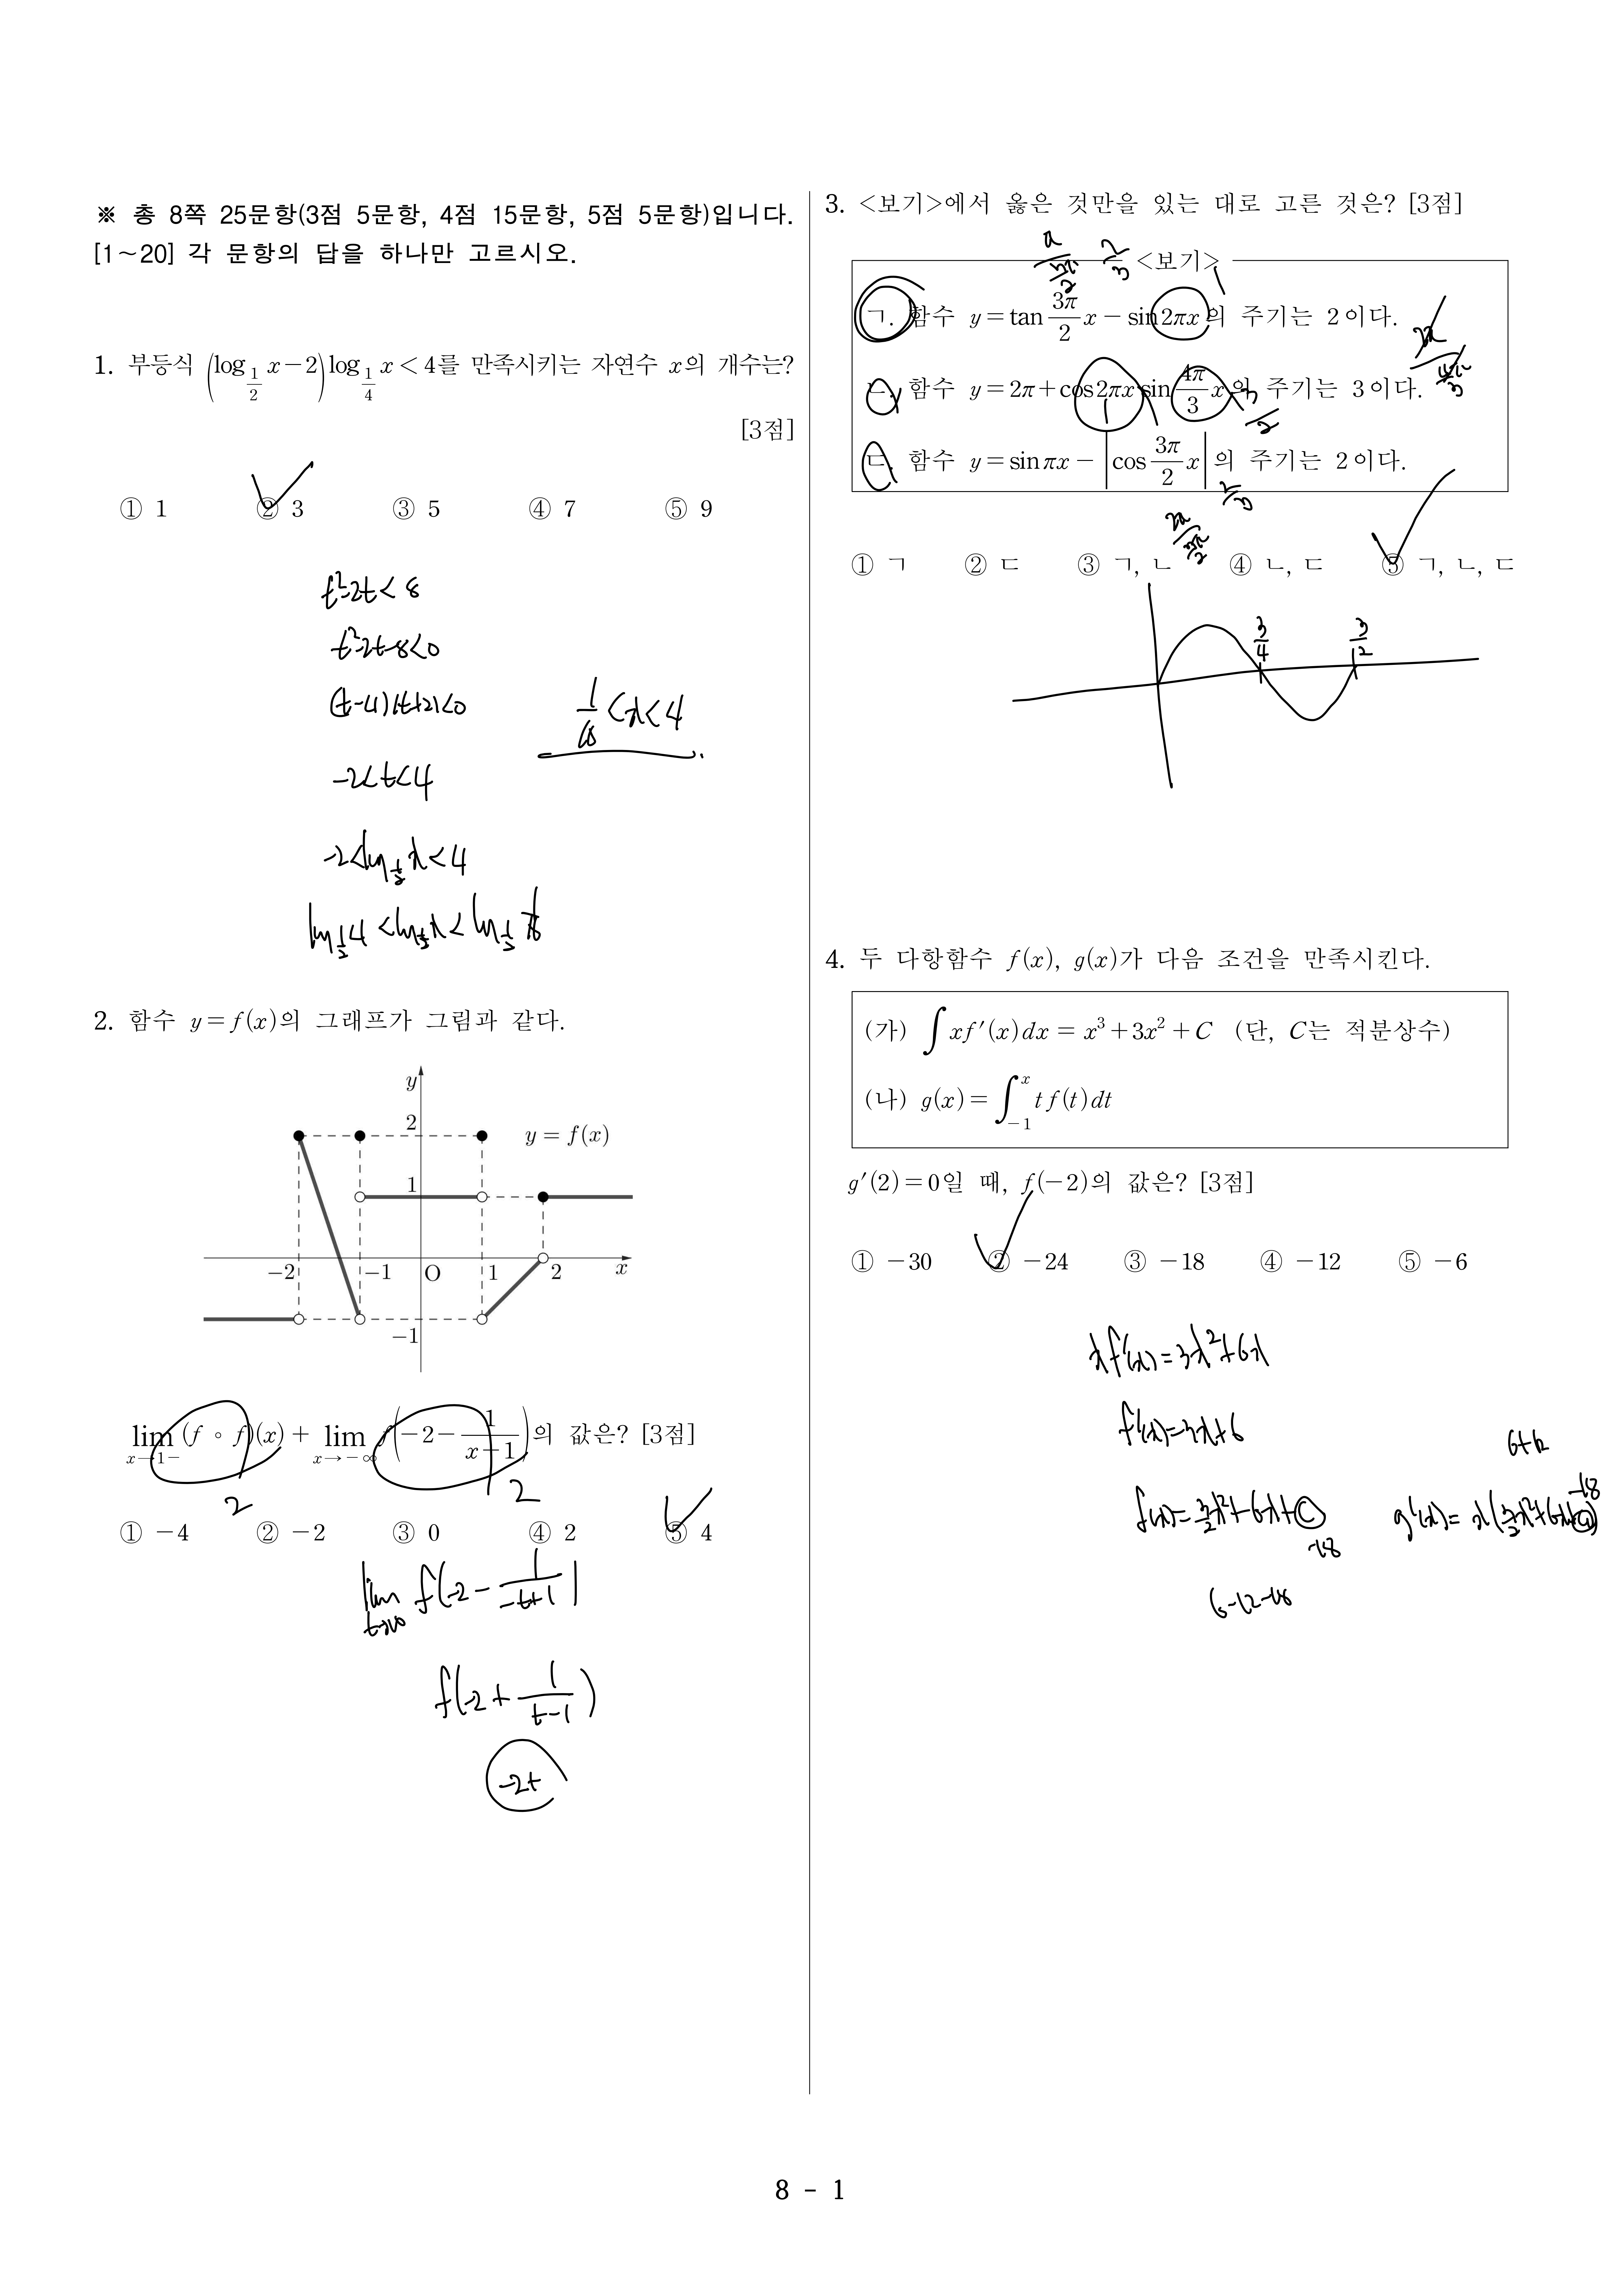 ※ 총 8쪽 25문항(3점 5문항, 4점 15문항, 5점 5문항)입니다.
[1~20] 각 문항의 답을 하나만 고르시오.
1. 부등식 (log_{1/2} x - 2) log_{1/4} x < 4를 만족시키는 자연수 x의 개수는?
[3점]
① 1 ② 3 ③ 5 ④ 7 ⑤ 9
t²-2t<8
t²-2t-8<0
(t-4)(t+2)<0
1/16 <x<4
-2<t<4
-2<log_{1/2} x<4
log_{1/2} 4 <log_{1/2} x< log_{1/2} 1/16
2. 함수 y=f(x)의 그래프가 그림과 같다.
y
2
y=f(x)
1
-2 -1 O 1 2 x
-1
lim_{x→1-} (f∘f)(x) + lim_{x→-∞} f(-2 - 1/(x-1))의 값은? [3점]
2 2
① -4 ② -2 ③ 0 ④ 2 ⑤ 4
lim_{t→∞} f(-2 - 1/(-t+1))
f(-2 + 1/(t-1))
-2+
3. <보기>에서 옳은 것만을 있는 대로 고른 것은? [3점]
π/(3π/2) 2/3
<보기>
1
ㄱ. 함수 y = tan 3π/2 x - sin2πx의 주기는 2이다.
2π/(4π/3)
ㄴ. 함수 y = 2π + cos2πx sin 4π/3 x의 주기는 3이다.
1 3/2
ㄷ. 함수 y = sinπx - |cos 3π/2 x|의 주기는 2이다.
2/3
2π/(3π/2)
① ㄱ ② ㄷ ③ ㄱ, ㄴ ④ ㄴ, ㄷ ⑤ ㄱ, ㄴ, ㄷ
3/4 3/2
4. 두 다항함수 f(x), g(x)가 다음 조건을 만족시킨다.
(가) ∫xf′(x)dx = x³+3x²+C (단, C는 적분상수)
(나) g(x) = ∫_{-1}^{x} tf(t)dt
g′(2)=0일 때, f(-2)의 값은? [3점]
① -30 ② -24 ③ -18 ④ -12 ⑤ -6
xf′(x)=3x²+6x
f′(x)=3x+6
6+12
-18
f(x)=3/2x²+6x+C g′(x)= x(3/2x²+6x+C)
-18
6-12-18
8 - 1